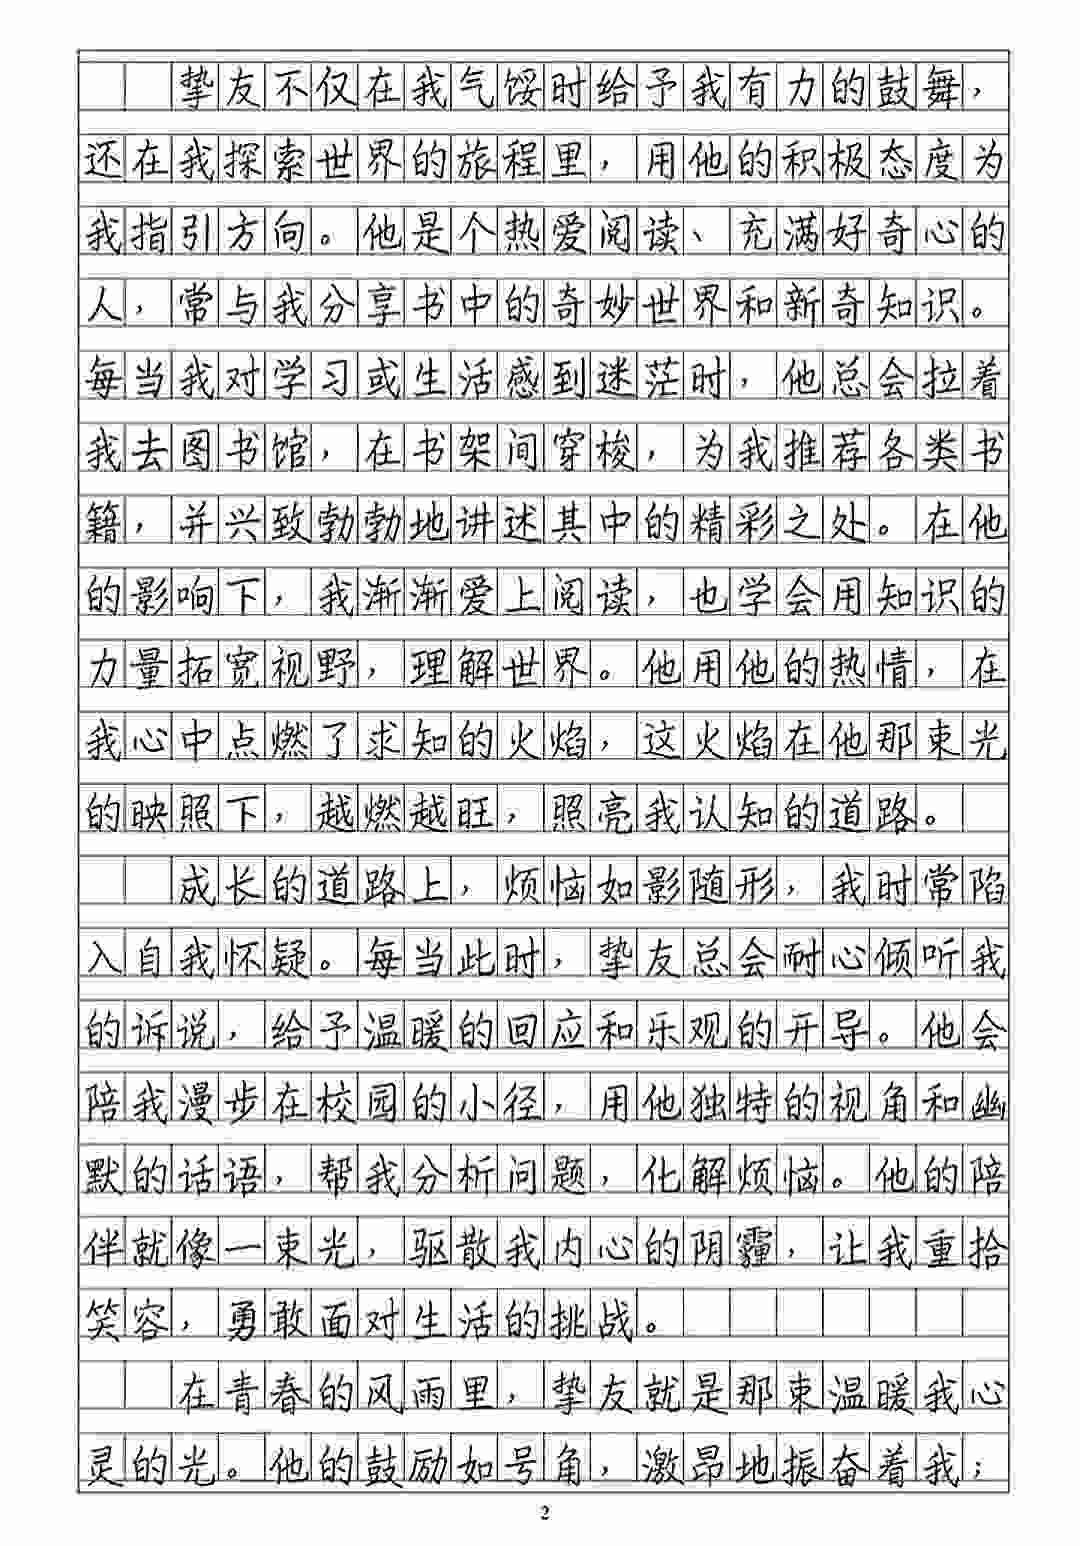 挚友不仅在我气馁时给予我有力的鼓舞，
还在我探索世界的旅程里，用他的积极态度为
我指引方向。他是个热爱阅读、充满好奇心的
人，常与我分享书中的奇妙世界和新奇知识。
每当我对学习或生活感到迷茫时，他总会拉着
我去图书馆，在书架间穿梭，为我推荐各类书
籍，并兴致勃勃地讲述其中的精彩之处。在他
的影响下，我渐渐爱上阅读，也学会用知识的
力量拓宽视野，理解世界。他用他的热情，在
我心中点燃了求知的火焰，这火焰在他那束光
的映照下，越燃越旺，照亮我认知的道路。
成长的道路上，烦恼如影随形，我时常陷
入自我怀疑。每当此时，挚友总会耐心倾听我
的诉说，给予温暖的回应和乐观的开导。他会
陪我漫步在校园的小径，用他独特的视角和幽
默的话语，帮我分析问题，化解烦恼。他的陪
伴就像一束光，驱散我内心的阴霾，让我重拾
笑容，勇敢面对生活的挑战。
在青春的风雨里，挚友就是那束温暖我心
灵的光。他的鼓励如号角，激昂地振奋着我；
2